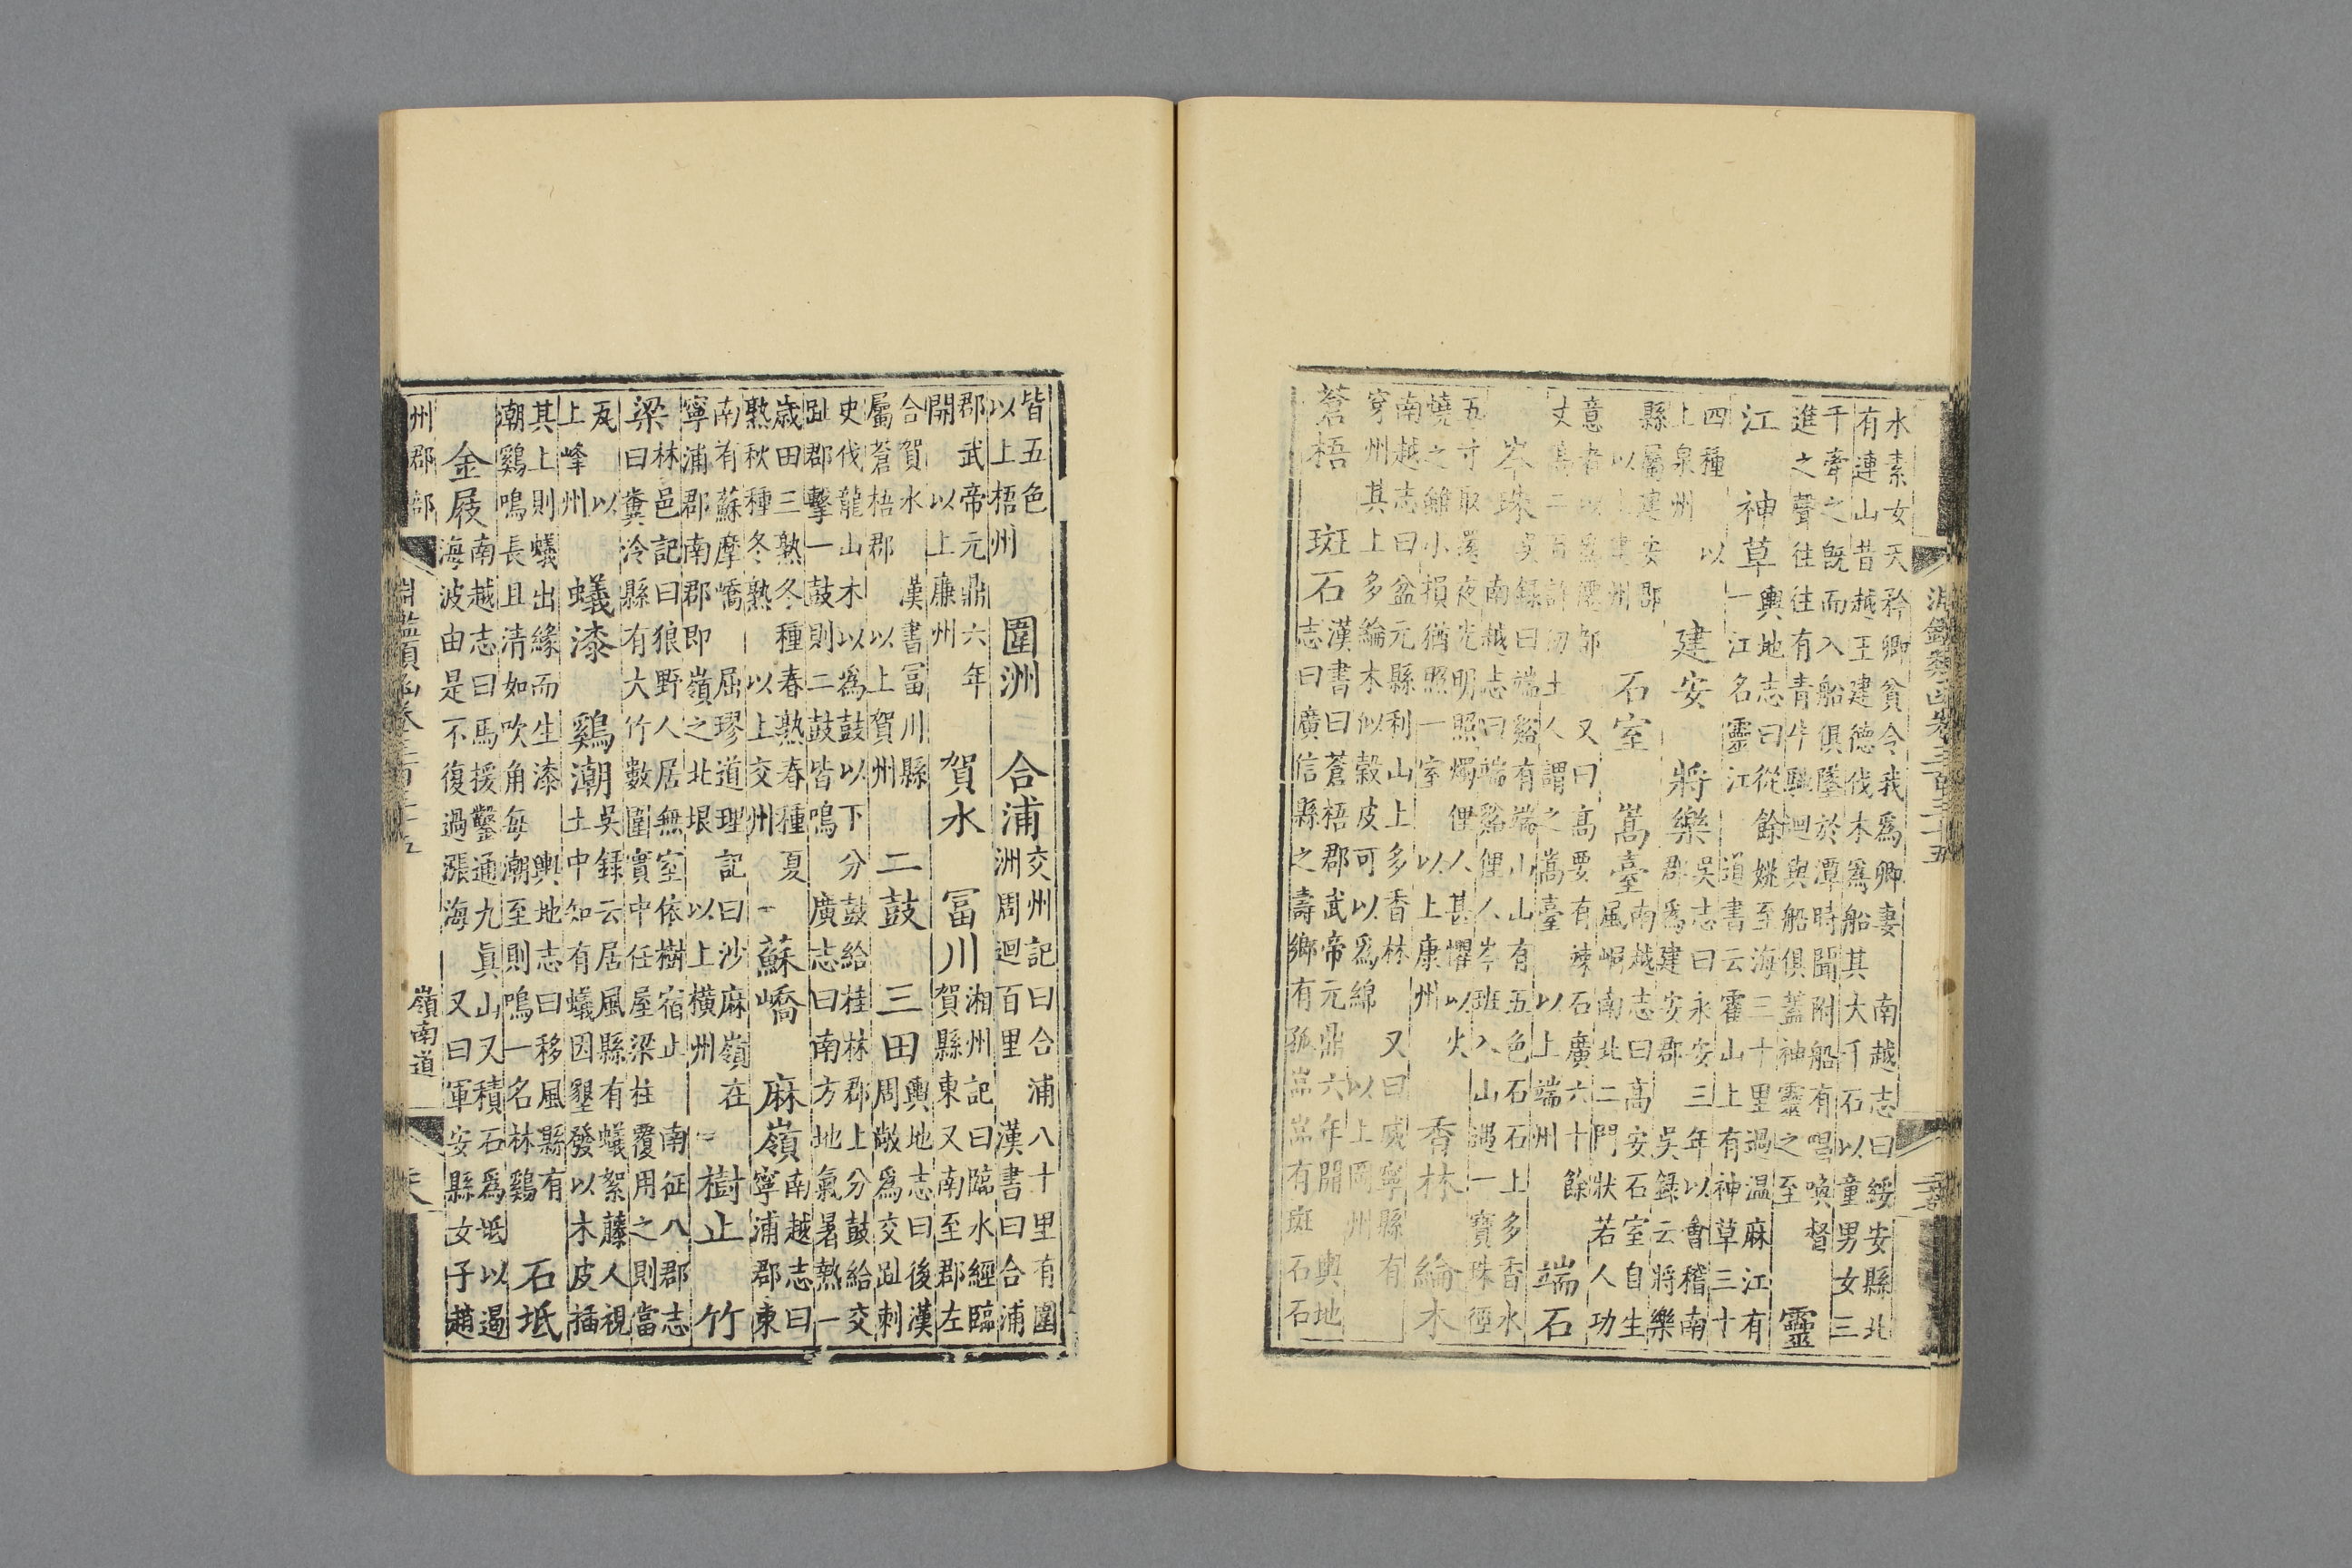 淵鑑類函卷三百三十五
水素女天矜卿貧令我爲卿妻　南越志曰綏安縣北
有連山昔越王建德伐木爲船其大千石以童男女三
千牽之旣而入船俱墜於潭時聞附船有唱喚督
進之聲往往有青牛馳迴與船俱蓋神靈之至
靈
江　神草
輿地志曰從餘姚至海三十里過溫麻江有
一江名靈江　道書云霍山上有神草三十
四種　以
上泉州
建安　將樂
吳志曰永安三年以會稽南
郡爲建安郡　吳錄云將樂
縣屬建安郡
以上建州
石室　嵩臺
南越志曰高安石室自生
風南北二門狀若人功
意者以爲僊　又曰高要有竦石廣六十餘
丈高二百許仞土人謂之嵩臺　以上端州
端石
岑珠
吳錄曰端谿有端山山有五色石石上多香水
南越志曰端谿俚人岑班入山遇一寶珠徑
五寸取還夜光明照燭俚人甚懼以火
燒之雖小損猶照一室　以上康州
香林　綸木
南越志曰盆元縣利山上多香林　又曰威寧縣有
穿州其上多綸木似穀皮可以爲綿　以上岡州
蒼梧　斑石
漢書曰蒼梧郡武帝元鼎六年開　輿地
志曰廣信縣之壽鄉有孤嵓嵓有斑石石
皆五色
以上梧州
圍洲　合浦
交州記曰合浦八十里有圍
洲周迴百里　漢書曰合浦
郡武帝元鼎六年
開　以上廉州
賀水　冨川
湘州記曰臨水經臨
賀縣東又南至郡左
合賀水　漢書冨川縣
屬蒼梧郡　以上賀州
二鼓　三田
輿地志曰後漢
周敞爲交趾刺
史伐龍山木以爲鼓以下分鼓給桂林郡上分鼓給交
趾郡擊一鼓則二鼓皆鳴　廣志曰南方地氣暑熱一
歲田三熟冬種春熟春種夏
熟秋種冬熟　以上交州
蘇嶠　麻嶺
南越志曰
寧浦郡東
南有蘇摩嶠　屈璆道理記曰沙麻嶺在
寧浦郡南郡即嶺之北垠　以上橫州
樹止　竹
梁
林邑記曰狼野人居無室依樹宿止　南征八郡志
曰糞泠縣有大竹數圍實中任屋梁柱覆用之則當
瓦　以
上峰州
蟻漆　鷄潮
吳錄云居風縣有蟻絮藤人視
土中知有蟻因墾發以木皮插
其上則蟻出緣而生漆　輿地志曰移風縣有
潮鷄鳴長且清如吹角每潮至則鳴一名林鷄
石坻
金屐
南越志曰馬援鑿通九眞山又積石爲坻以遏
海波由是不復過漲海　又曰軍安縣女子趙
州郡部
淵鑑類函卷三百三十五
嶺南道